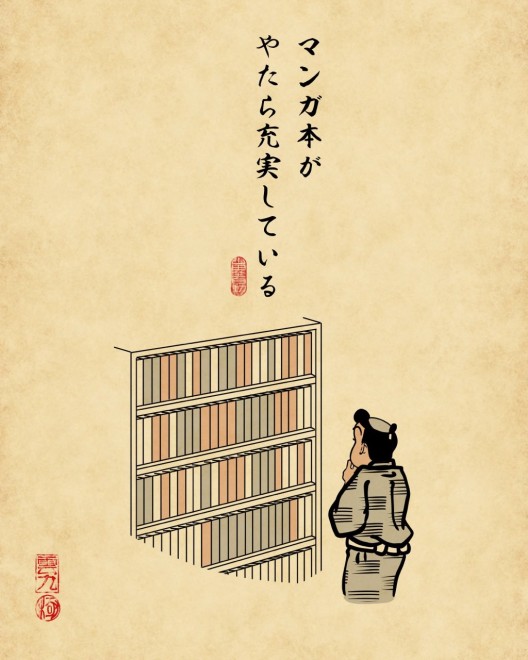 マンガ本が
やたら充実している